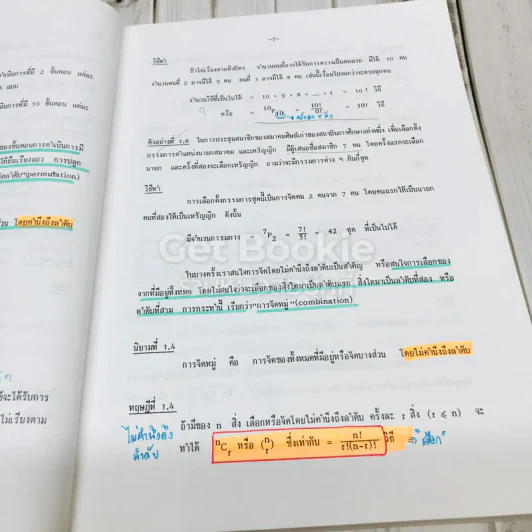 -7-
วิธีทำ
ถ้าไม่เรียงตามคิวมีตร จำนวนคนที่อาจได้รับการตรวจเป็นคนแรก มีได้ 10 คน
จำนวนคนที่ 2 อาจมีได้ 9 คน คนที่ 3 อาจมีได้ 8 คน เช่นนี้เรื่อยไปจนกว่าจะครบทุกคน
จำนวนวิธีที่เป็นไปได้ = 10 × 9 × 8 × ... × 1 = 10! วิธี
หรือ = 10P10 = 10!/0! = 10! วิธี
ตัวอย่างที่ 1.8 ในการประชุมสมาชิกของสมาคมศิษย์เก่าของสถาบันการศึกษาแห่งหนึ่ง เพื่อเลือกตั้ง
กรรมการตำแหน่งนายกสมาคม และเหรัญญิก มีผู้เสนอชื่อสมาชิก 7 คน โดยครั้งแรกจะเลือก
นายก และครั้งที่สองจะเลือกเหรัญญิก ถามว่าจะมีกรรมการต่าง ๆ กันกี่ชุด
วิธีทำ
การเลือกตั้งกรรมการชุดนี้เป็นการจัดคน 2 คนจาก 7 คน โดยคนแรกให้เป็นนายก
คนที่สองให้เป็นเหรัญญิก ดังนั้น
มีจำนวนกรรมการ 7P2 = 7!/5! = 42 ชุด ที่เป็นไปได้
Get Bookie
ในบางครั้งเราสนใจการจัดโดยไม่คำนึงถึงลำดับเป็นสำคัญ หรือสนใจการเลือกของ
จากที่มีอยู่ทั้งหมด โดยไม่สนใจว่าจะเลือกของสิ่งใดมาเป็นลำดับแรก สิ่งใดมาเป็นลำดับที่สอง หรือ
ลำดับที่สาม การกระทำนี้ เรียกว่า"การจัดหมู่"(combination)
นิยามที่ 1.4
การจัดหมู่ คือ การจัดของทั้งหมดที่มีอยู่หรือจัดบางส่วน โดยไม่คำนึงถึงลำดับ
ทฤษฎีที่ 1.4
ถ้ามีของ n สิ่ง เลือกหรือจัดโดยไม่คำนึงถึงลำดับ ครั้งละ r สิ่ง (r ≤ n) จะ
ทำได้ nCr หรือ (n r) ซึ่งเท่ากับ = n!/r!(n-r)! วิธี ⇒ "เลือก"
ไม่คำนึงถึง
ลำดับ
ำเนินการที่มี 2 ขั้นตอน แต่ละ
นการที่มี 10 ขั้นตอน แต่ละ
ของขั้นตอนการดำเนินการมี
"(permutation)
วน โดยคำนึงถึงลำดับ
จะได้รับการ
ไม่เรียงตาม